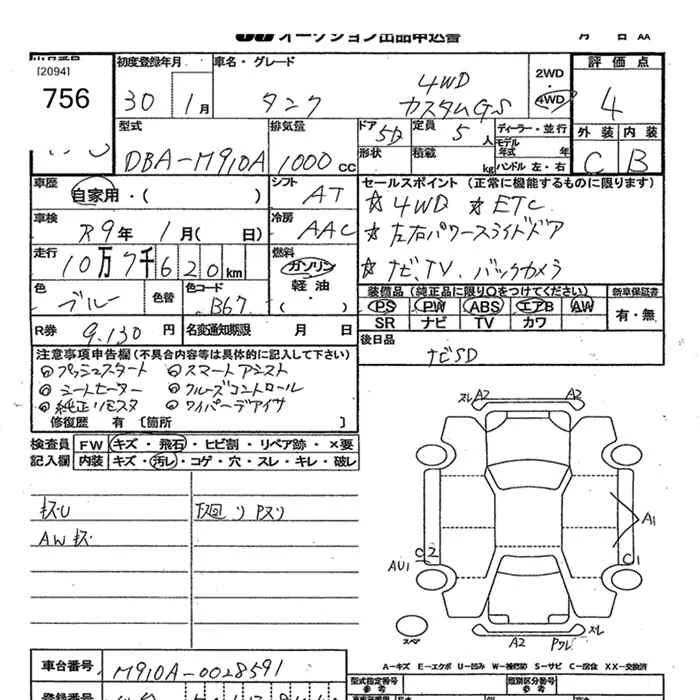 オークション出品申込書 月 日 AA
[2094]
756
初度登録年月 30 1月
車名・グレード タンク 4WD カスタムG.S
2WD・4WD
評価点 4
外装 内装
C B
型式 DBA-M910A
排気量 1000 CC
ドア 5D
形状
定員 5 人
積載 kg
ディーラー・並行
モデル年式 年
ハンドル 左・右
車歴 自家用・( )
シフト AT
車検 R9年 1月( 日)
冷房 AAC
走行 10万7千620km
燃料 ガソリン
軽油
・( )
色 ブルー 色替
色コード B67
R券 9.130円
名変通知期限 月 日
セールスポイント (正常に機能するものに限ります)
☆4WD ☆ETC
☆左右パワースライドドア
☆ナビ、TV、バックカメラ
装備品(純正品に限り○をつけてください)
PS PW ABS エアB AW
SR ナビ TV カワ
新車保証書
有・無
後日品 ナビSD
注意事項申告欄(不具合内容等は具体的に記入して下さい)
◎プッシュスタート ◎スマートアシスト
◎シートヒーター ◎クルーズコントロール
◎純正リモスタ ◎ワイパーデアイサ
修復歴 有 [箇所 ]
検査員 FW キズ・飛石・ヒビ割・リペア跡・×要
記入欄 内装 キズ・汚レ・コゲ・穴・スレ・キレ・破レ
キズU 下廻リ Pスリ
AWキズ
スレ A2 A2
A1
C2
AU1
C1
スペア
A2 Pズレ スレ
A-キズ E-エクボ U-凹み W-補修跡 S-サビ C-腐食 XX-交換済
車台番号 M910A-0028591
型式指定番号
参考
類別区分番号
参考
登録番号